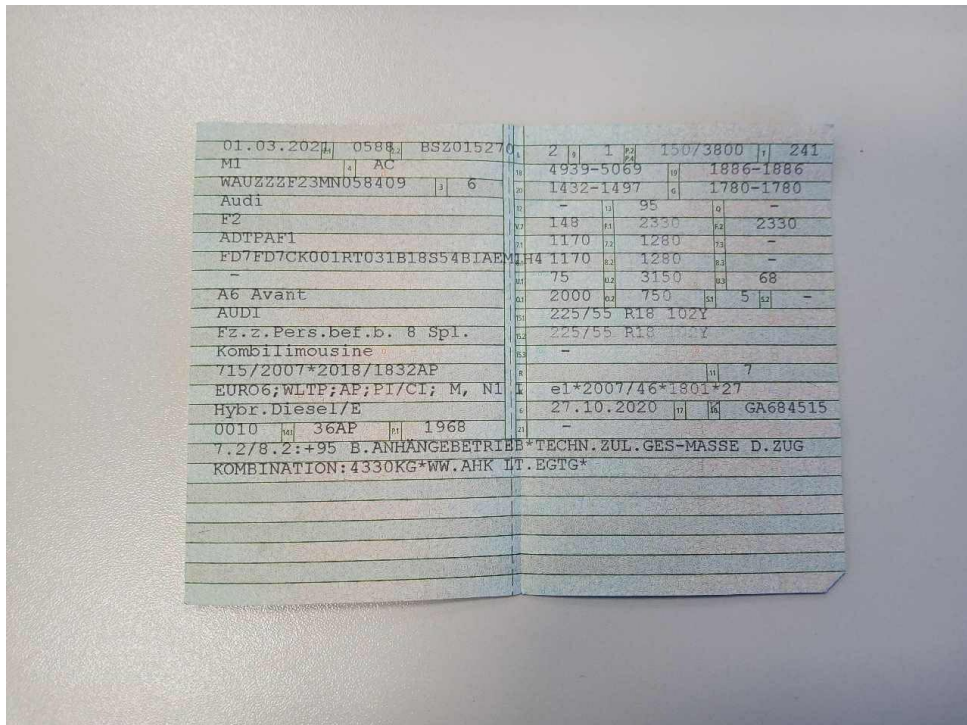 01.03.2021 0588 BSZ015270
M1 4 AC
WAUZZZF23MN058409 3 6
Audi
F2
ADTPAF1
FD7FD7CK001RT031B18S54B1AEM1H4
-
A6 Avant
AUDI
Fz.z.Pers.bef.b. 8 Spl.
Kombilimousine
715/2007*2018/1832AP
EURO6;WLTP;AP;PI/CI; M, N1 I
Hybr.Diesel/E
0010 14.1 36AP P.1 1968
L 2 9 1 P.2 P.4 150/3800 T 241
18 4939-5069 19 1886-1886
20 1432-1497 G 1780-1780
12 - 13 95 Q -
V.7 148 F.1 2330 F.2 2330
7.1 1170 7.2 1280 7.3 -
1170 8.2 1280 8.3 -
U.1 75 U.2 3150 U.3 68
O.1 2000 O.2 750 S.1 5 S.2 -
15.1 225/55 R18 102Y
15.2 225/55 R18 102Y
15.3 -
R 11 7
e1*2007/46*1801*27
6 27.10.2020 17 16 GA684515
21 -
7.2/8.2:+95 B.ANHÄNGEBETRIEB*TECHN.ZUL.GES-MASSE D.ZUG
KOMBINATION:4330KG*WW.AHK LT.EGTG*